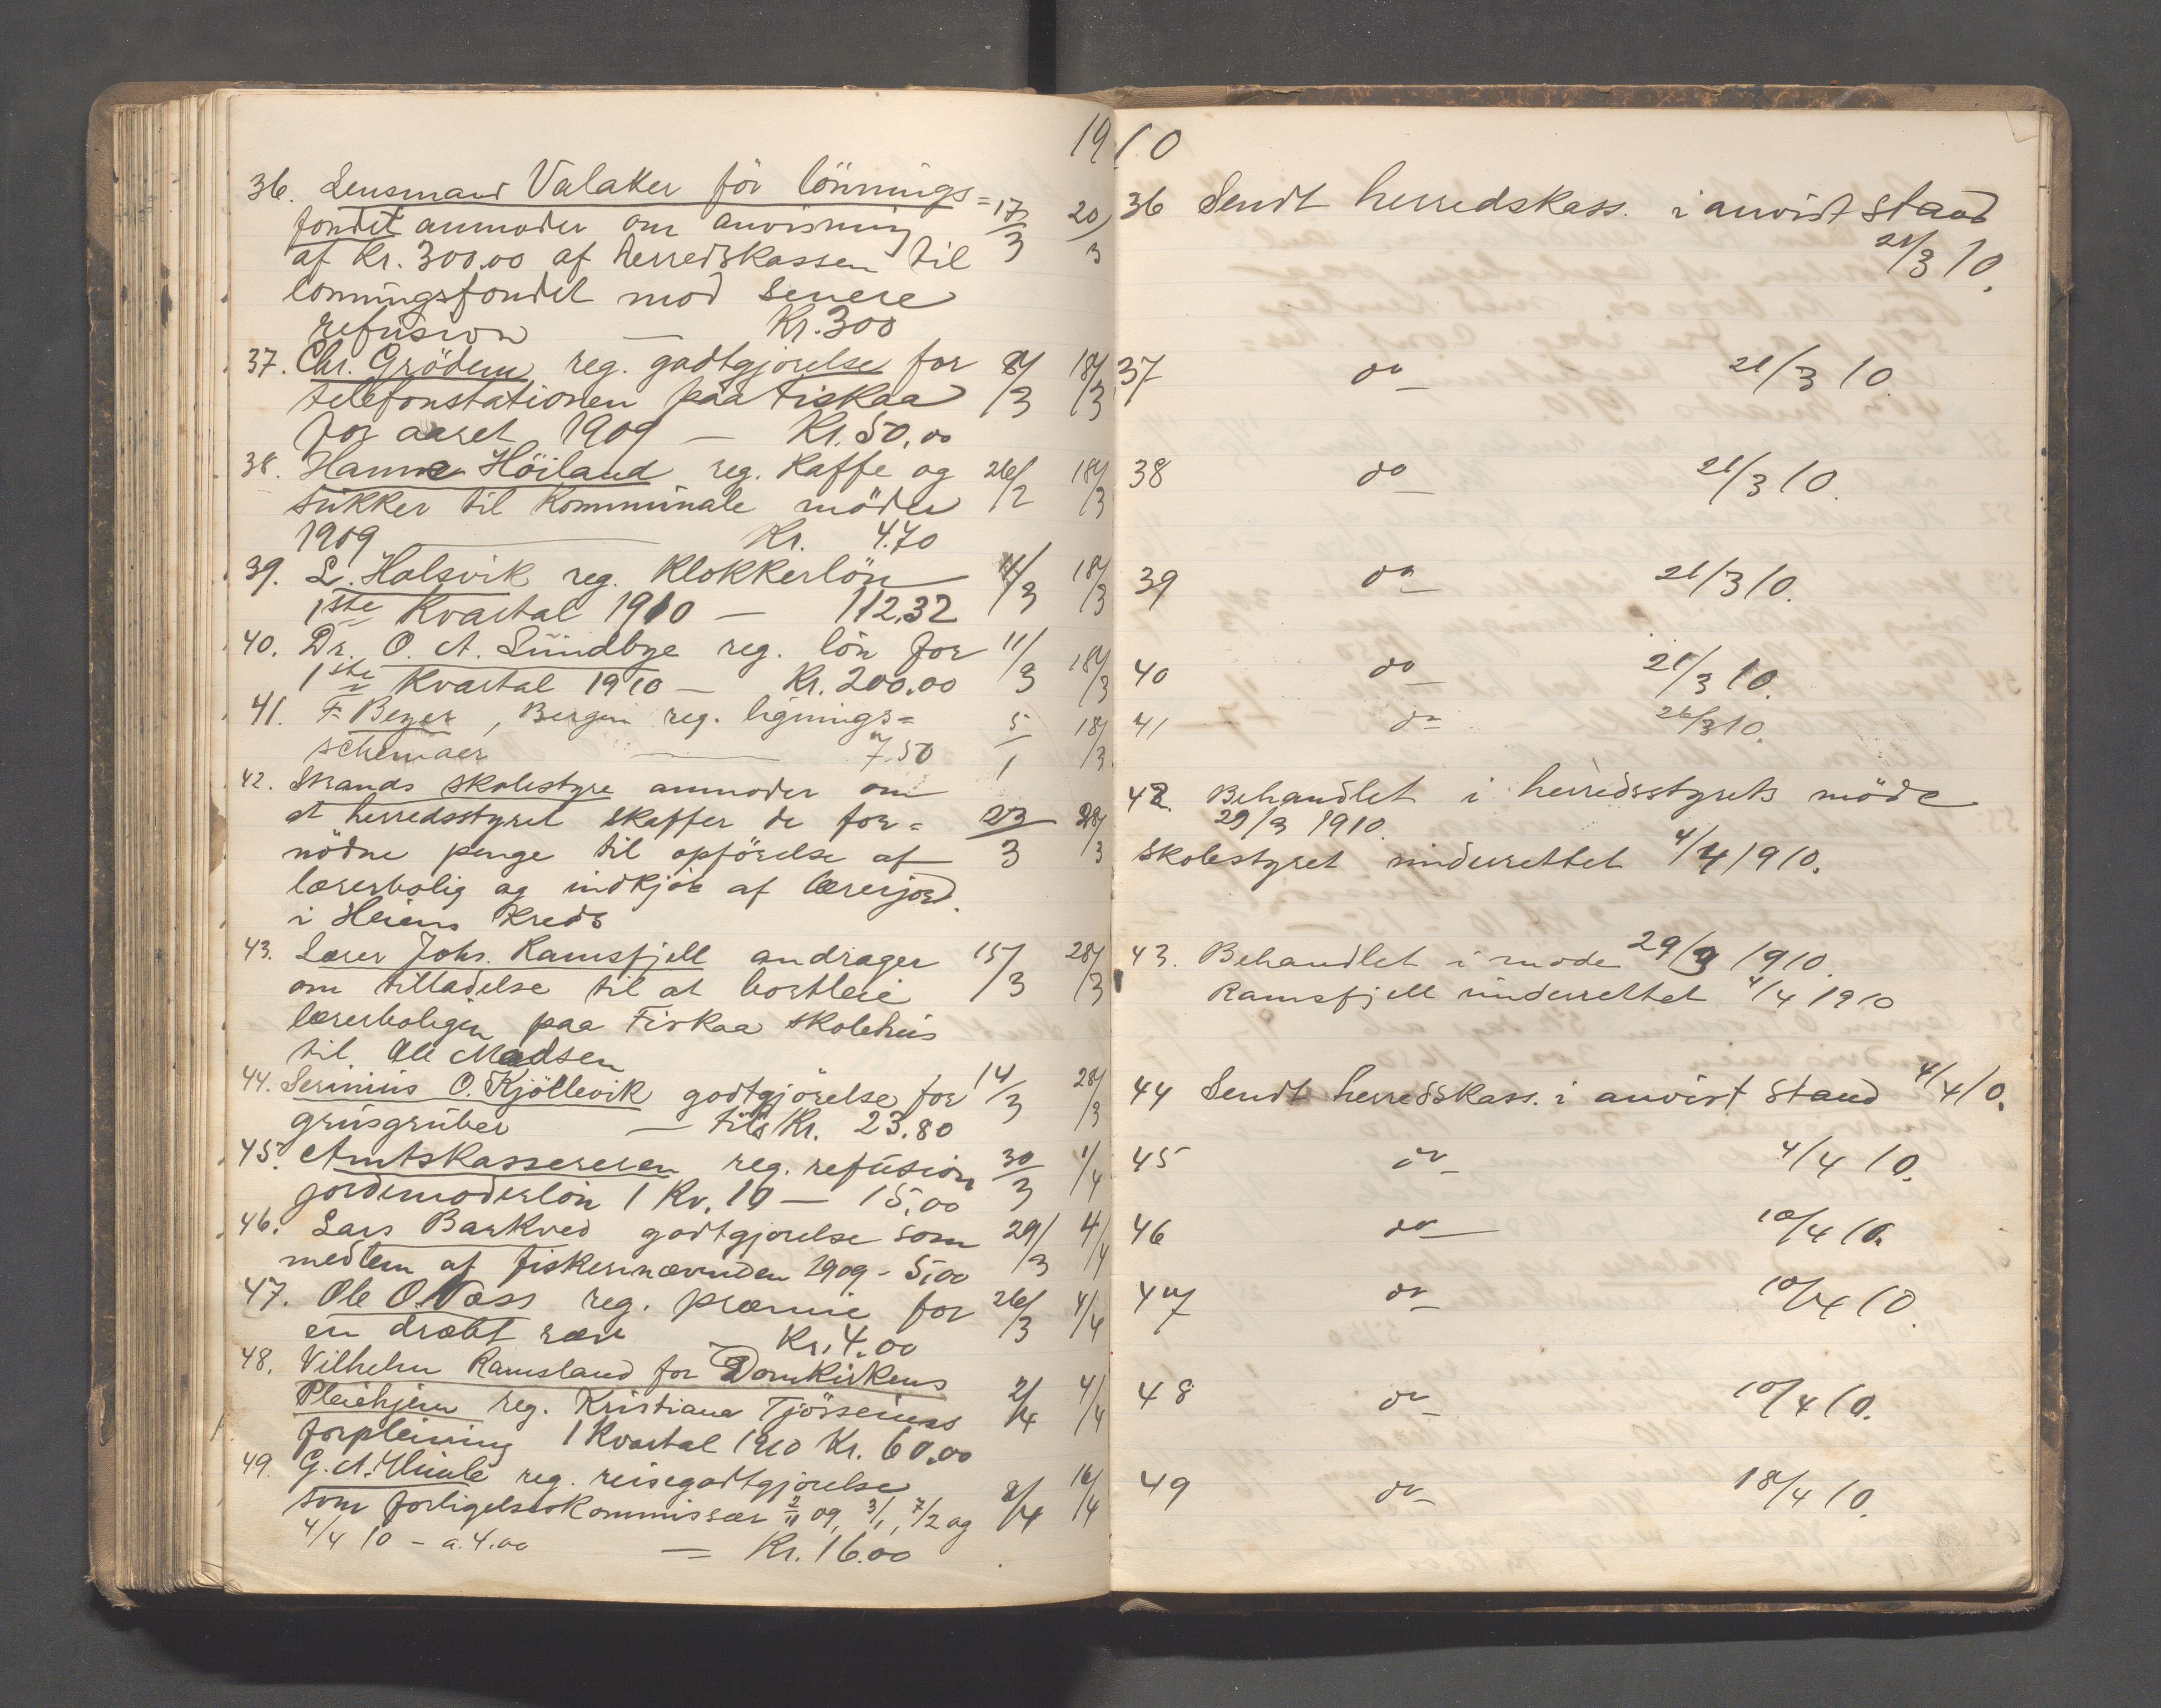 1910
36. Lensmand Valaker för lönnings= 17/3 20/3
fondet anmoder om anvisning
af Kr. 300,00 af herredskassen til
lönningsfondet mod senere
refusion — Kr. 300
37. Chr. Grödem reg. godtgjörelse for 8/3 18/3
telefonstationen paa Fiskaa
for aaret 1909 — Kr. 50,00
38. Hanne Höiland reg. Kaffe og 26/2 18/3
sukker til Kommunale möder
1909 — Kr. 4.70
39. L. Halsvik reg. Klokkerlön 11/3 18/3
1ste Kvartal 1910 — 112,32
40. Dr. O. A. Lundbye reg. lön for 11/3 18/3
1ste Kvartal 1910 — Kr. 200.00
41. F. Beyer, Bergen reg. lignings= 5/1 18/3
schemaer — " 7.50
42. Strands skolestyre anmoder om
at herredsstyret skaffer de for= 23/3 28/3
nödne penge til opförelse af
lærerbolig og indkjöb af lærerjord
i Heiens Kreds
43. Lærer Johs. Ramsfjell andrager 15/3 28/3
om tilladelse til at bortleie
lærerboligen paa Fiskaa skolehus
til Ole Madsen
44. Serinius O. Kjöllevik godtgjörelse for 14/3 28/3
grusgruber — tils Kr. 23.80
45. Amtskassereren reg. refusion 30/3 1/4
jordemoderlön 1 Kv. 10 — 15,00
46. Lars Barkved godtgjörelse som 29/3 4/4
medlem af fiskerinævnden 1909 - 5,00
47. Ole O. Voss reg. præmie for 26/3 4/4
en dræbt ræv — Kr. 4.00
48. Vilhelm Ramsland for Domkirkens
Pleiehjem reg. Kristiane Tjösseims 2/4 4/4
forpleining 1 Kvartal 1910 Kr. 60.00
49. G. A. reg. reisegodtgjörelse
som forligelseskommissær 2/11 09, 3/1, 7/2 og 8/4 16/4
4/4 10 - a. 4.00 = Kr. 16.00
36 Sendt herredskass. i anvist stand
21/3 10.
37 do 21/3 10.
38 do 21/3 10.
39 do 21/3 10.
40 do 21/3 10.
41 do 26/3 10.
42. Behandlet i herredsstyrets möde
29/3 1910.
skolestyret underrettet 4/4 1910.
43. Behandlet i möde 29/3 1910.
Ramsfjell underrettet 4/4 1910
44 Sendt herredskass. i anvist stand 4/4 10.
45 do 4/4 10.
46 do 10/4 10.
47 do 10/4 10.
48 do 10/4 10.
49 do 18/4 10.